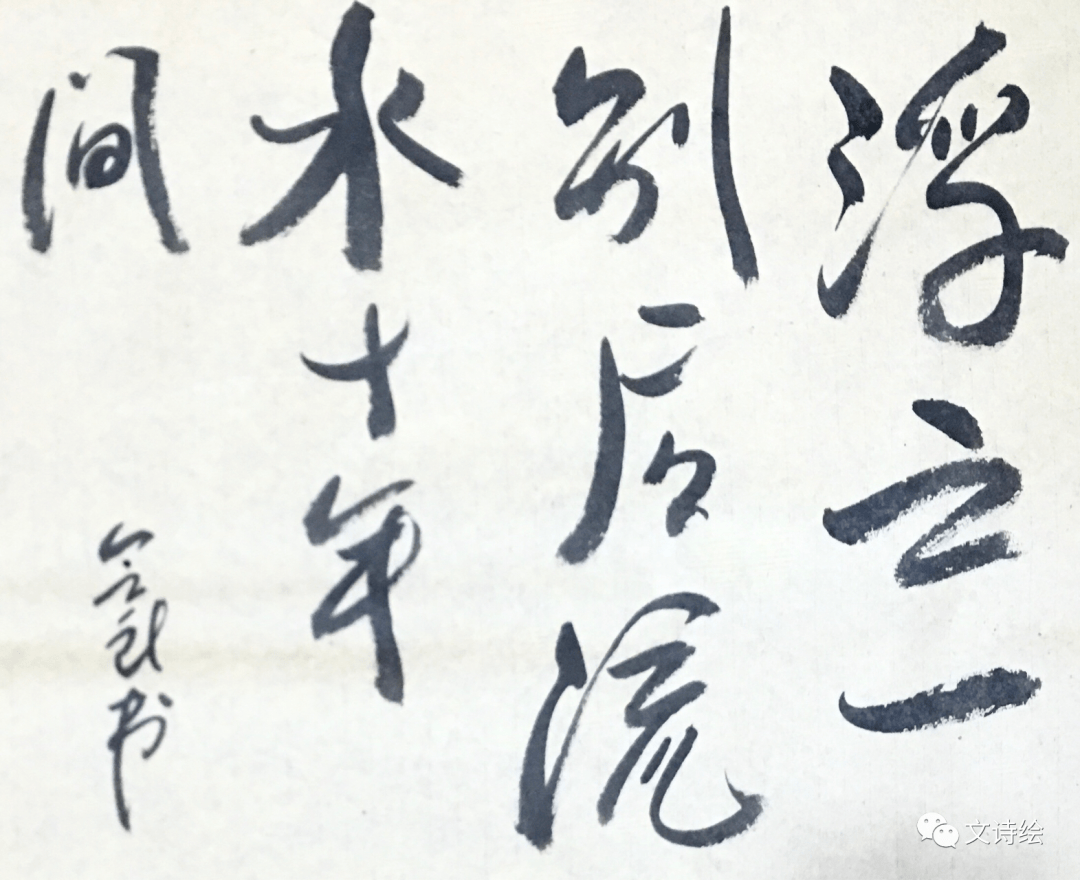 浮云一
别后流
水十年
间
书
文诗绘